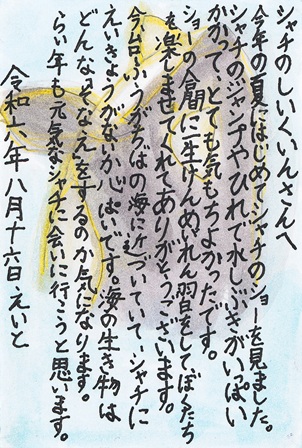 シャチのしいくいんさんへ
今年の夏にはじめてシャチのショーを見ました。
シャチのジャンプやひれで水しぶきがいっぱい
かかって、とても気もちよかったです。
ショーの合間に一生けんめいれん習をしてぼくたち
を楽しませてくれてありがとうございます。
今台ふうがちばの海に近づいていて、シャチに
えいきょうがないかしんぱいです。海の生き物は
どんなそなえをするのか気になります。
らい年も元気なシャチに会いに行こうと思います。
令和六年八月十六日 えいと